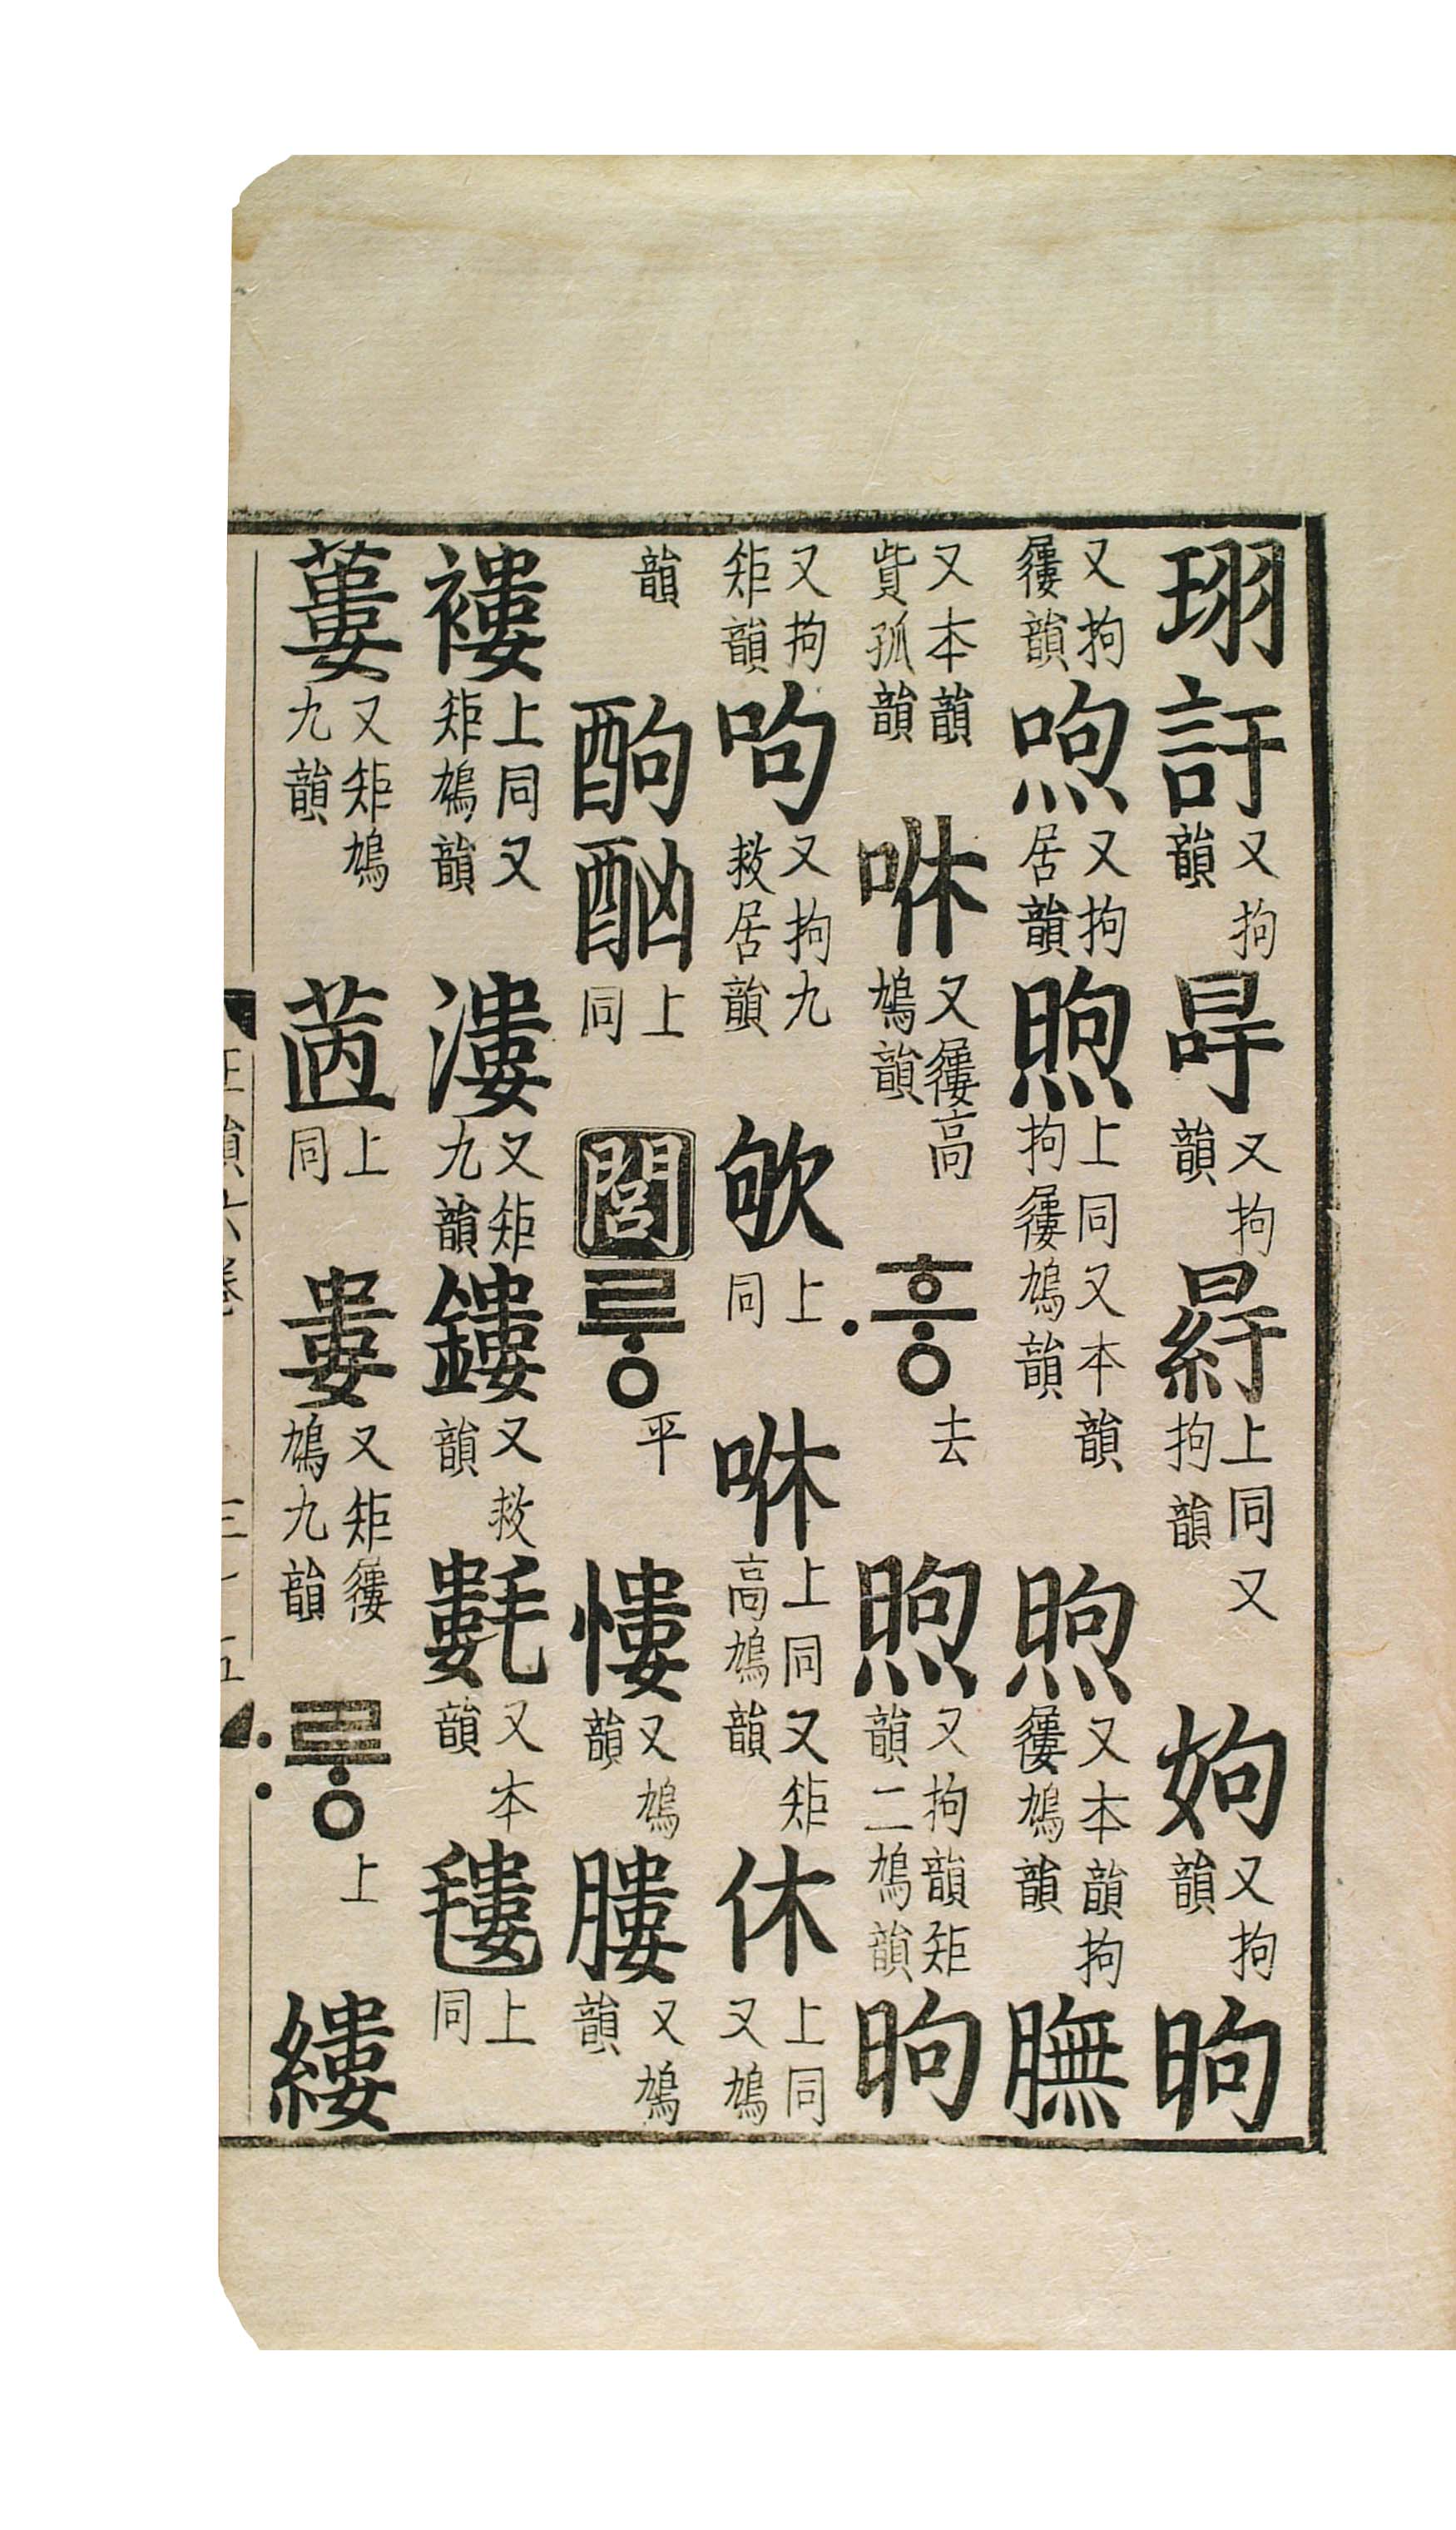 珝訏又拘韻冔又拘韻𦀒上同又拘韻姁又拘韻昫
又拘屨韻喣又拘居韻煦上同又本韻拘屨鳩韻煦又本韻拘屨鳩韻膴
又本韻貲孤韻咻又屨高鳩韻흫去煦又拘韻矩韻二鳩韻昫
又拘矩韻呴又拘九救居韻欨上同咻上同又矩高鳩韻休上同又鳩
韻酗上同閭릏平慺又鳩韻膢又鳩韻
褸上同又矩鳩韻漊又矩九韻鏤又救韻氀又本韻𣯫上同
蔞又矩鳩九韻上同婁又矩屨鳩九韻릏上縷